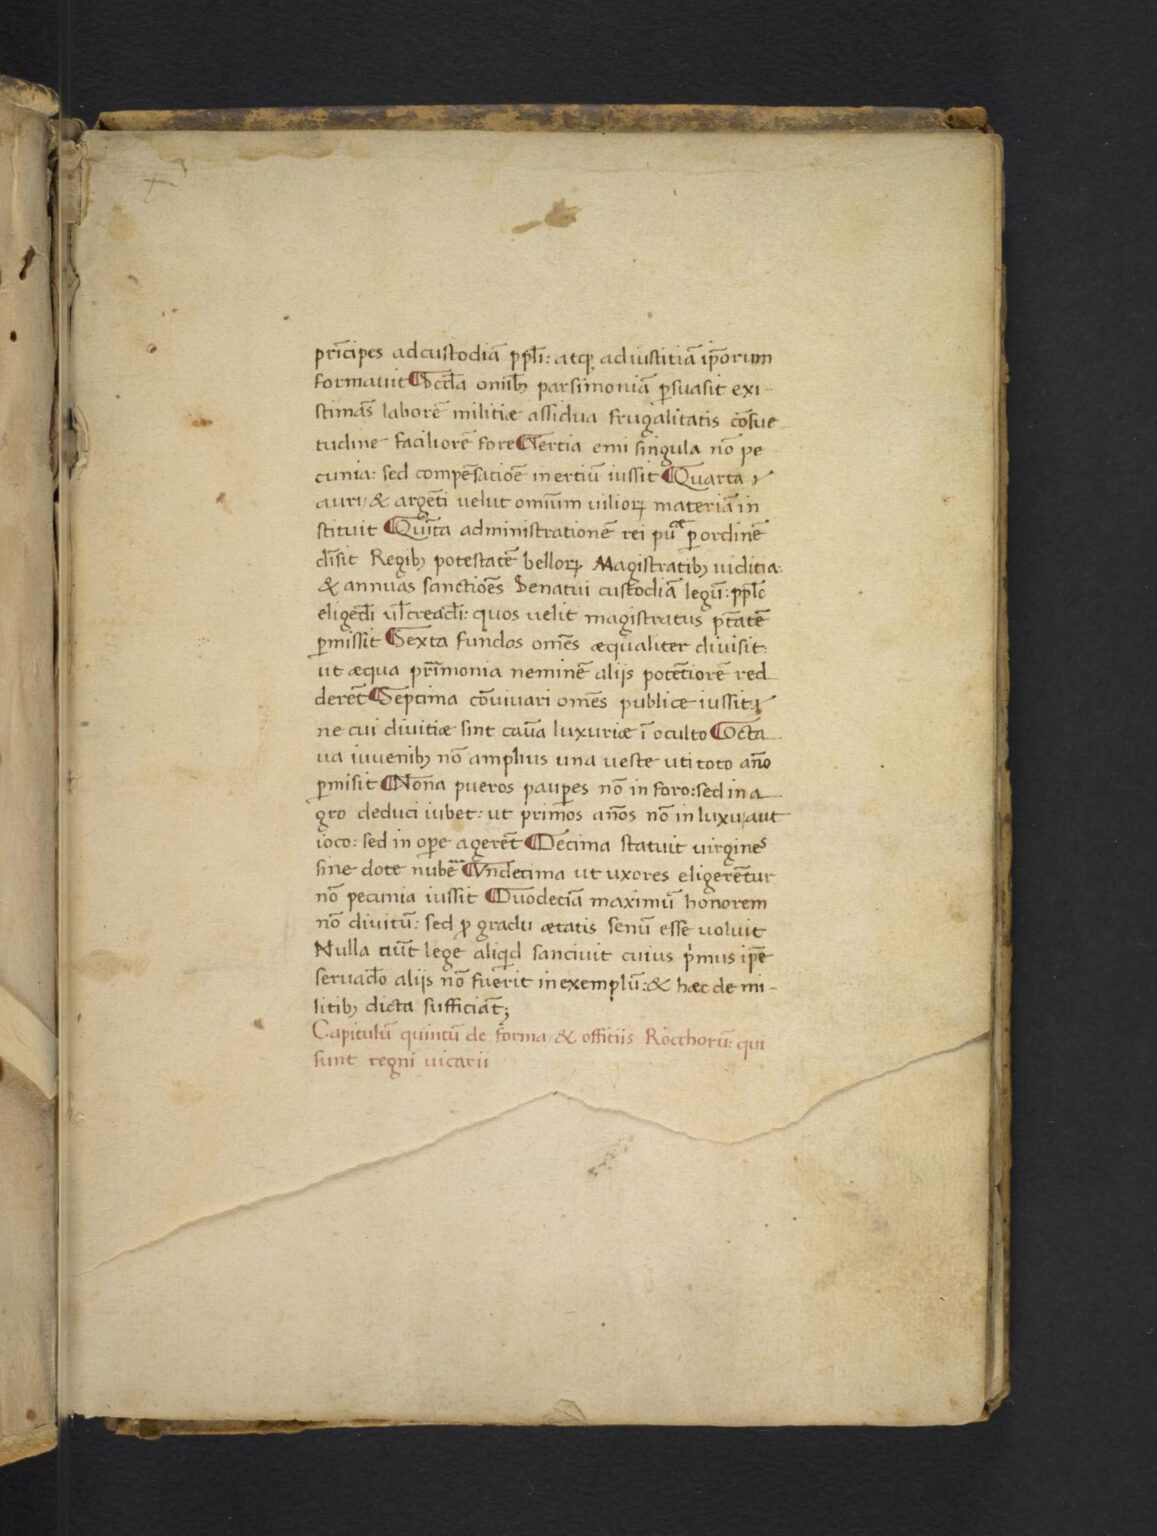 prīcipes adcustodiā ppłi: atqꝫ adiustitiā ip̄orum
formauit ¶Scđa oniībꝫ parsimoniā ꝑsuasit exi-
stimās laborē militiæ assidua frugalitatis cōsue
tudine faciliorē fore ¶Tertia emi singula nō pe
cunia: sed compēsatiōe inertiū iussit ¶Quarta
auri/ & argēti velut omīum uilioꝝ materiā in
stituit ¶Quīta administrationē rei pū ꝑ ordinē
diīsit Regibꝫ potestatē belloꝝ Magistratibꝫ iuditia:
& annuas sanctiōes Senatui custodiā legū: ppło
eligēdi ułcreādi: quos uelit magistratus ptātē
ꝑmissit ¶Sexta fundos omēs æqualiter diuisit:
ut æqua prīmonia neminē alijs potētiorē red
derēt ¶Septima cōuiuari omēs publice iussit:
ne cui diuitiæ sint cauā luxuriæ ī oculto ¶Octa
ua iuuenibꝫ nō amplius una ueste uti toto año
ꝑmisit ¶Nōna pueros pauꝑes nō in foro: sed in a
gro deduci iubet: ut primos años nō in luxu/aut
ioco: sed in oꝑe agerēt ¶Decima statuit uirgines
sine dote nubē ¶Vndecima ut uxores eligerētur
nō pecunia iussit ¶Duodeciā maximū honorem
nō diuitū: sed ꝓ gradu ætatis senū esse uoluit
Nulla aūt lege aliqid sanciuit cuius pimus ip̄e
seruādo alijs nō fuerit in exemplū: & hæc de mi-
litibꝫ dicta sufficiāt;
Capitulū quintū de forma/ & officiis Rocchorū: qui
sunt regni uicarii